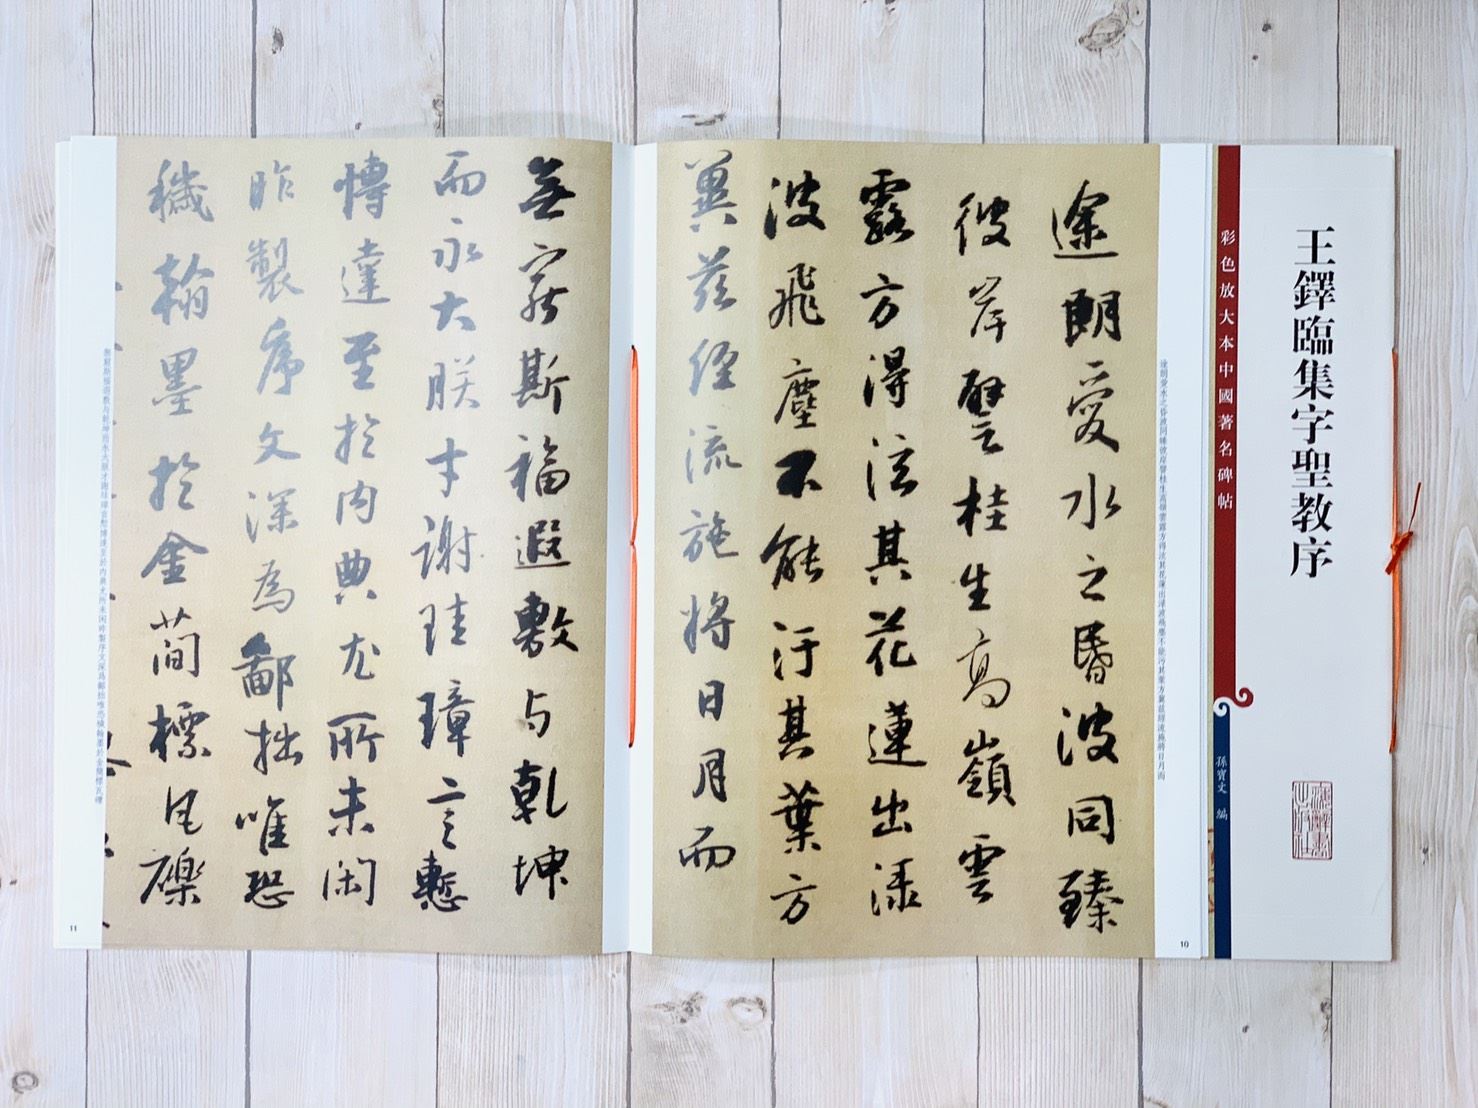 王鐸臨集字聖教序
彩色放大本中國著名碑帖
孫寶文 編
途朗愛水之昏波同臻彼岸譬桂生高嶺雲露方得泫其花蓮出淥波飛塵不能污其葉方冀茲經流施將日月而
10
途朗愛水之昏波同臻
彼岸譬桂生高嶺雲
露方得泫其花蓮出淥
波飛塵不能汙其葉方
冀茲經流施將日月而
無窮斯福遐敷与乾坤
而永大朕才謝珪璋言慙
愽達至於內典尤所未閑
昨製序文深為鄙拙唯恐
穢翰墨於金簡標瓦礫
無窮斯福遐敷与乾坤而永大朕才謝珪璋言慙博達至於內典尤所未閑昨製序文深爲鄙拙唯恐穢翰墨於金簡標瓦礫
11